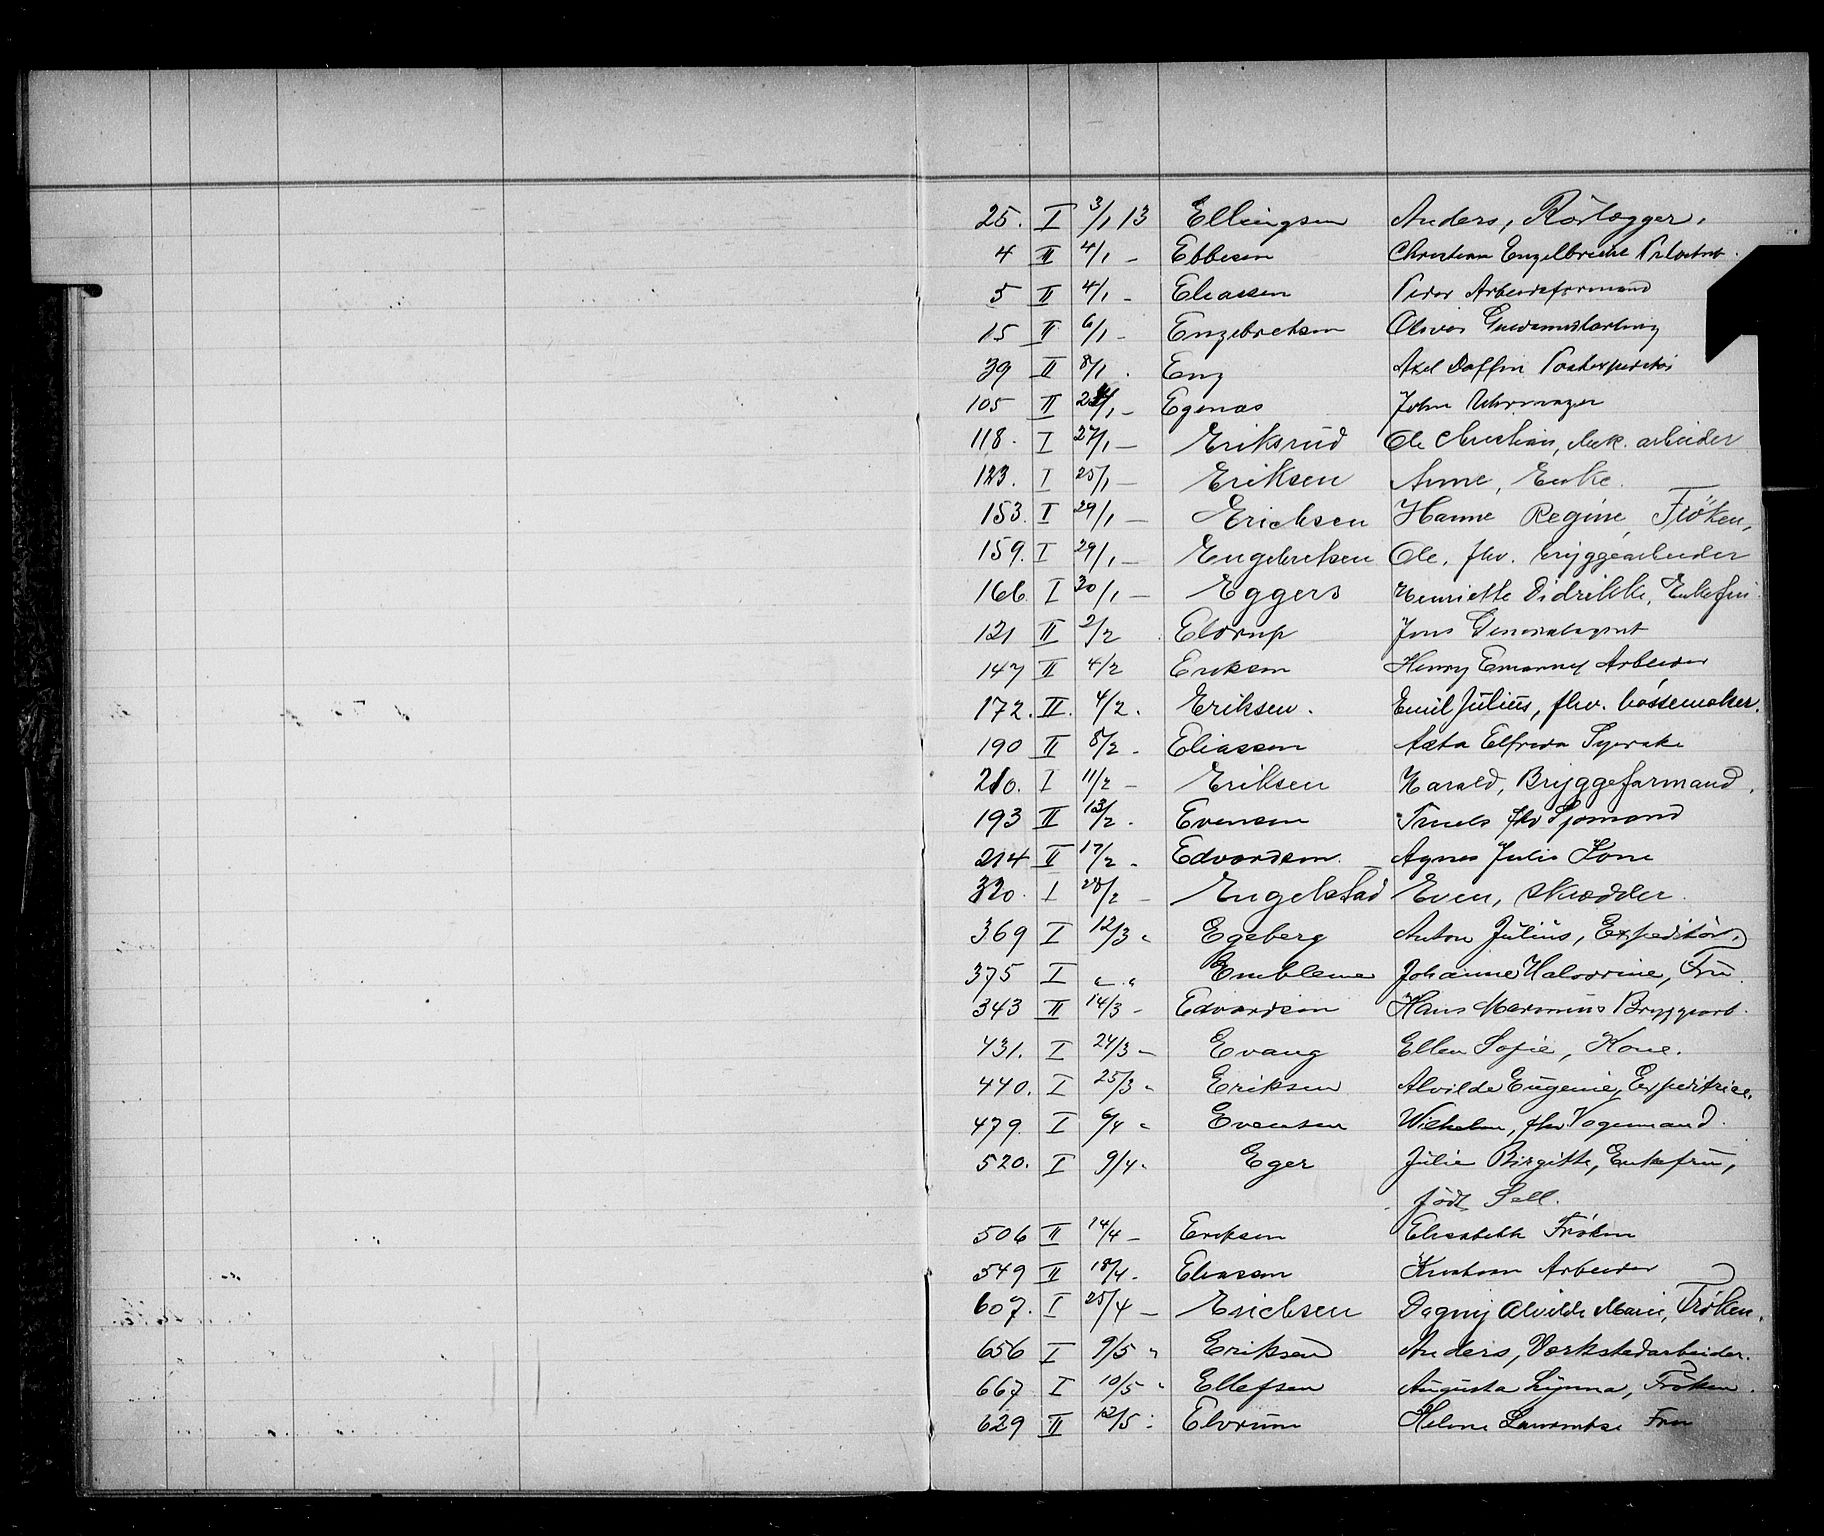 25. I 3/1 13 Ellingsen Anders, Rörlægger.
4 II 4/1 - Ebbesen Christian Engelbrecht
5 II 4/1 - Eliassen Peder Arbeidsformand
15 II 6/1 - Engebretsen Oliver
39 II 8/1 . Eng Axel Postexpeditör
105 II 1/1 - Egenæs John Uhrmager
118. I 27/1 - Eriksrud Ole Christian, Mek. arbeider
123. I 25/1 - Eriksen Anne, Enke.
153. I 29/1 - Erichsen Hanne Regine, Fröken,
159. I 29/1 - Engebretsen Ole, fhv. bryggearbeider
166 I 30/1 - Eggers Henriette Didrikke, Enkefru
121 II 2/2 Elstrup Jens Generalagent
147 II 4/2 Eriksen Henry Emanuel Arbeider
172. II. 4/2. Eriksen. Emil Julius, fhv. bössemaker.
190 II 8/2 - Eliassen Asta Elfrida Syerske
210. I 11/2 - Eriksen Harald, Bryggeformand.
193 II 13/2. Evensen Truels fhv Sjömand
214 II 17/2 - Edvardsen Agnes Julie Kone
320. I 28/2 - Engelstad Even, Skrædder.
369 I 12/3 " Egeberg Anton Julius, Expeditör.
375 I " " Embleme Johanne Halvorine, Fru
343 II 14/3 - Edvardsen Hans Marinius Bryggearb.
431. I 24/3 - Evang Ellen Sofie, Kone.
440. I 25/3 " Eriksen Alvilde Eugenie, Expeditrice.
479. I 6/4 " Evensen Wilhelm, fhv Vognmand.
520. I 9/4 " Eger Julie Birgitte, Enkefru,
född Sell.
506 II 14/4 - Eriksen Elisabeth Fröken
549 II 18/4. Eliassen Kristian Arbeider
607. I 25/4 - Erichsen Dagny Alvilde Marie, Fröken.
656 I 9/5 " Eriksen Anders, Værkstedarbeider.
667 I 10/5 " Ellefsen Augusta Lynna, Fröken.
629 II 12/5 - Elvrum Helene Laurentse Fru